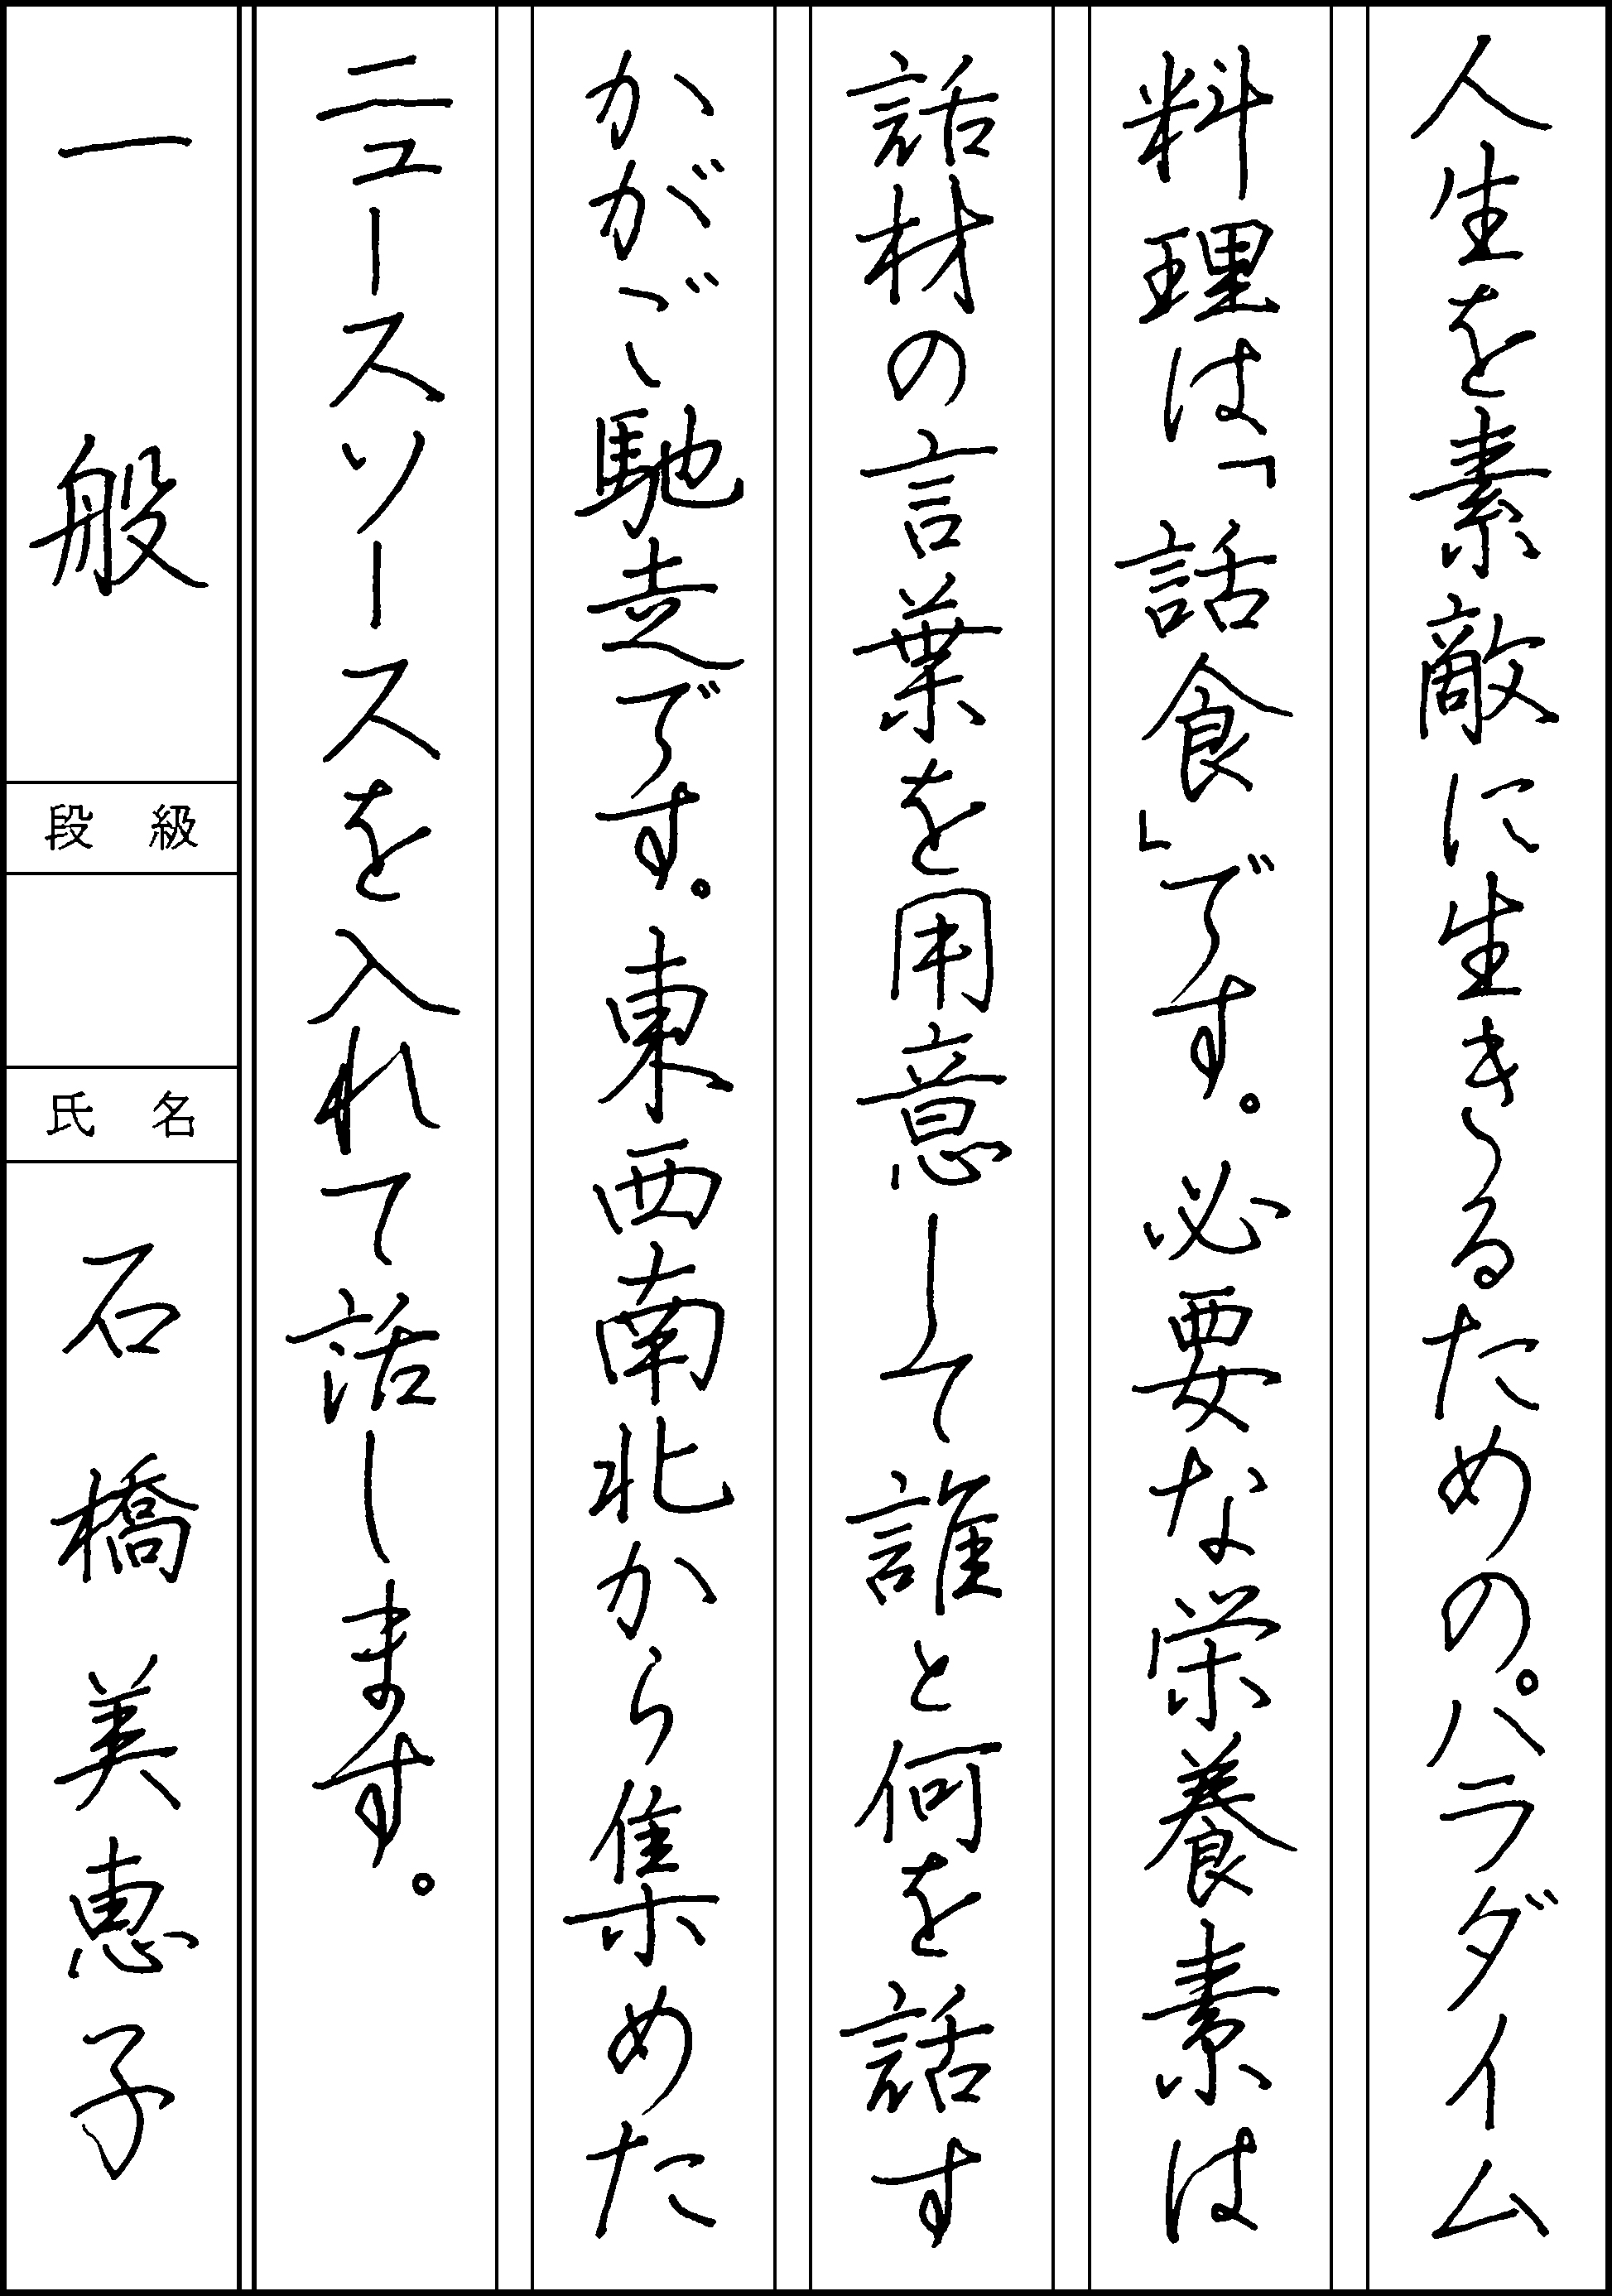 人生を素敵に生きるためのパラダイム
料理は「話食」です。必要な栄養素は
話材の言葉を用意して誰と何を話す
かがご馳走です。東西南北から集めた
ニュースソースを入れて話します。
一般
段級
氏名
石橋美恵子